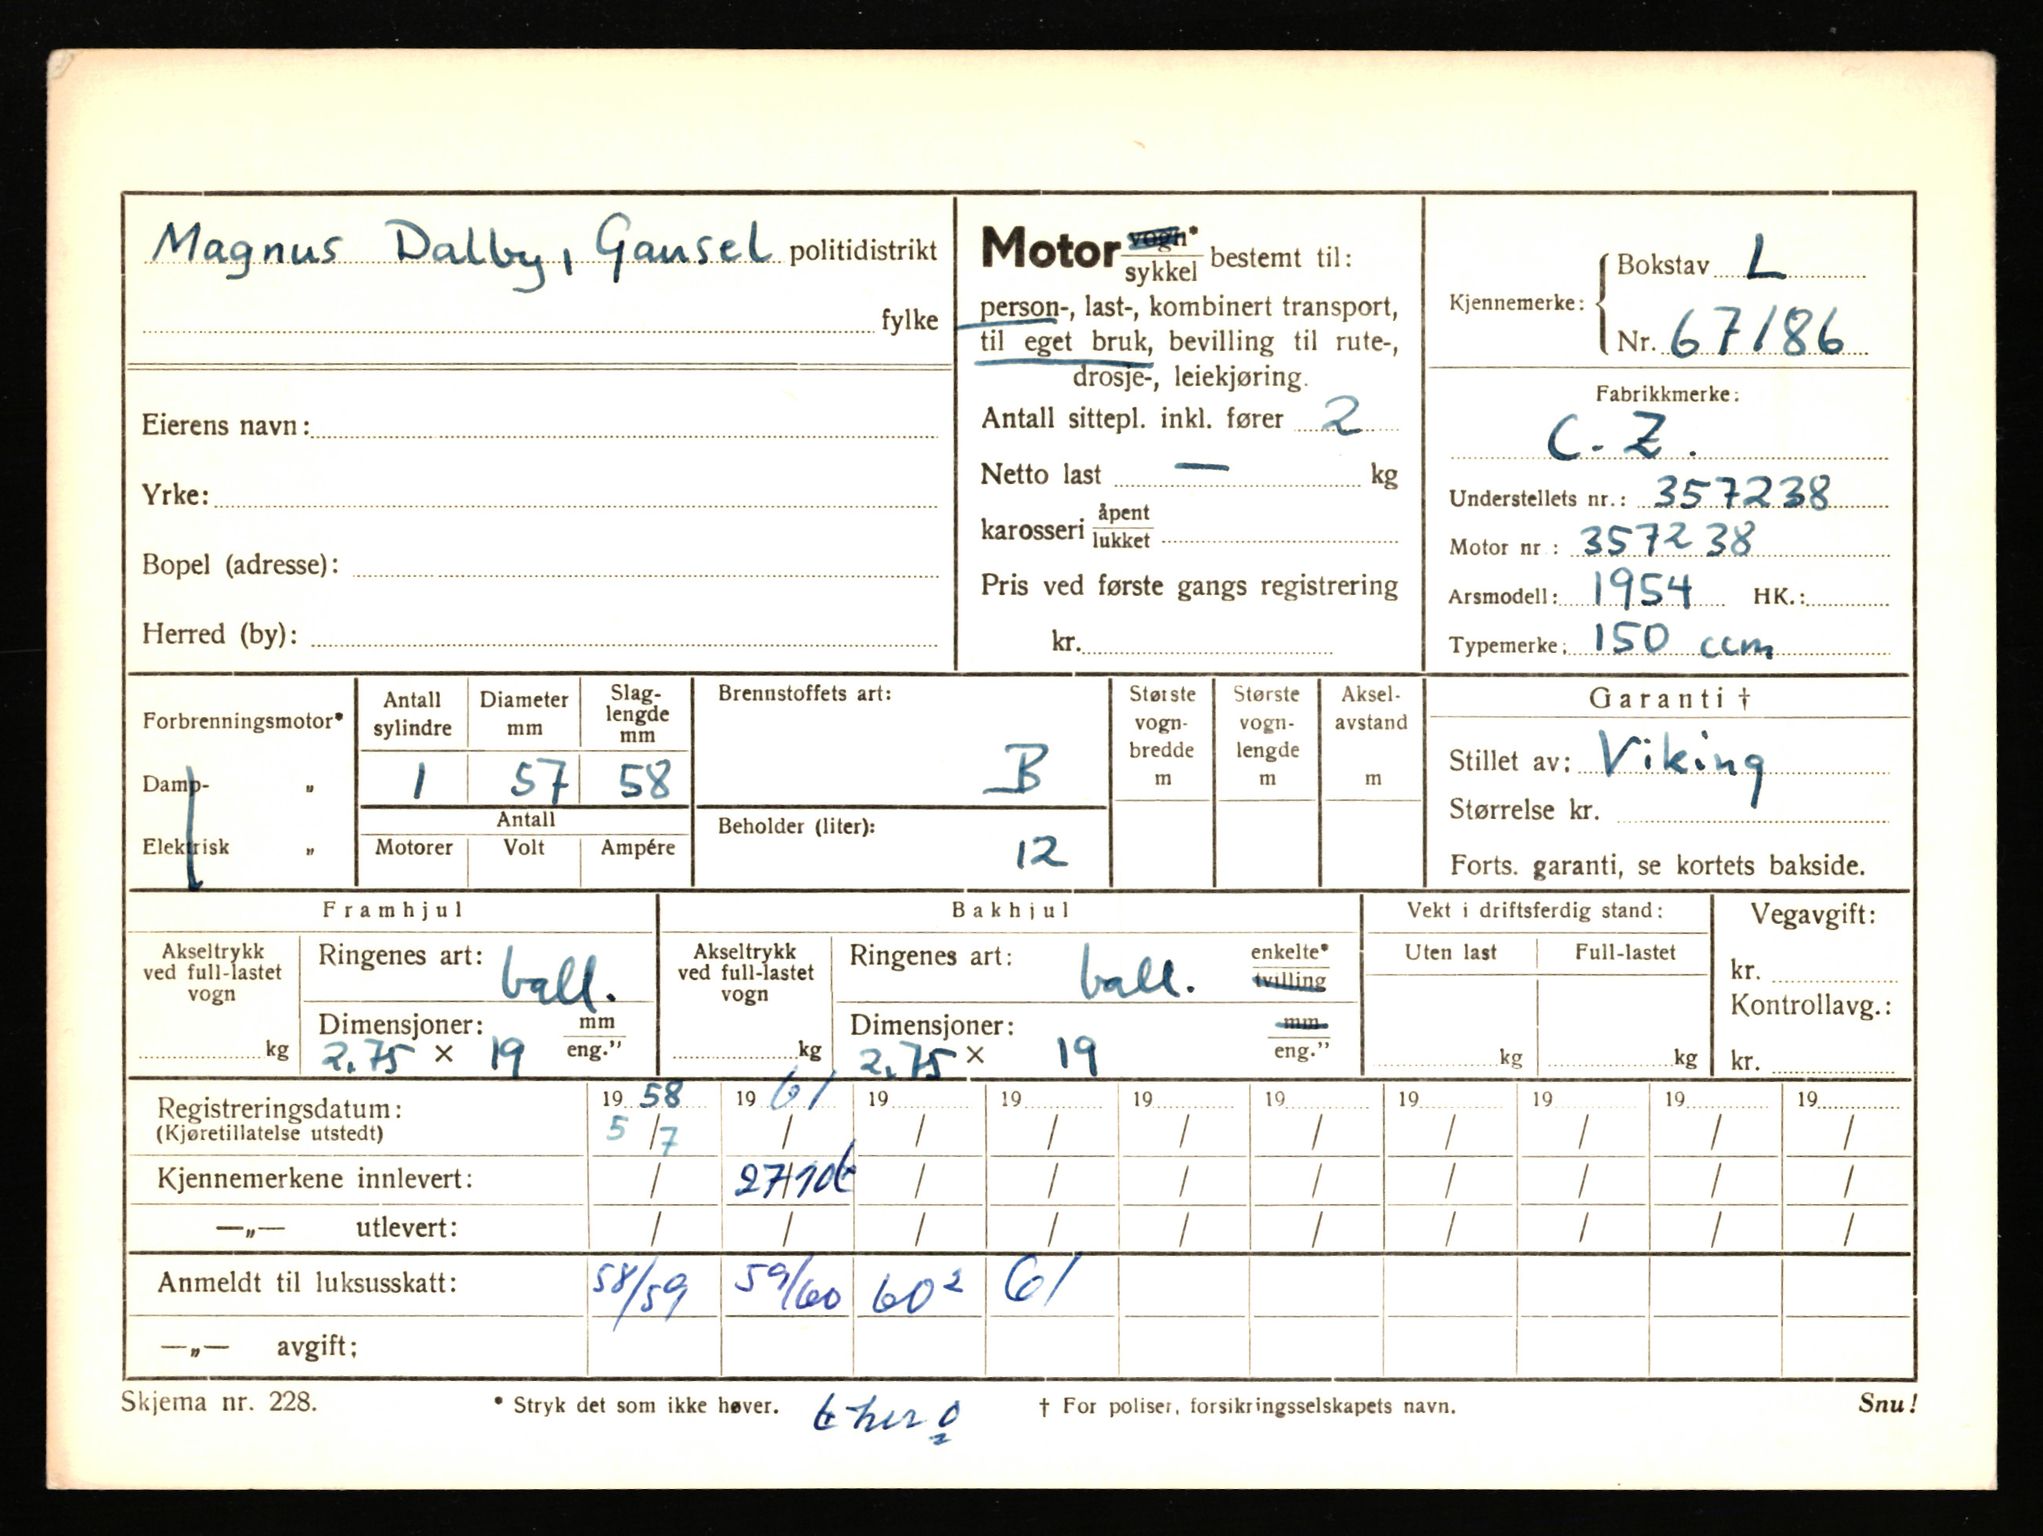 Magnus Dalby, Gausel politidistrikt
fylke
Eierens navn:
Yrke:
Bopel (adresse):
Herred (by):
Motor vogn* sykkel bestemt til:
person-, last-, kombinert transport,
til eget bruk, bevilling til rute-,
drosje-, leiekjøring.
Antall sittepl. inkl. fører 2
Netto last — kg
karosseri åpent lukket
Pris ved første gangs registrering
kr.
Kjennemerke: Bokstav L
Nr. 67186
Fabrikkmerke:
C.Z.
Understellets nr.: 357238
Motor nr: 357238
Arsmodell: 1954 HK.:
Typemerke: 150 ccm
Forbrenningsmotor*
Damp- „
Elektrisk „
Antall sylindre 1
Diameter mm 57
Slaglengde mm 58
Antall
Motorer Volt Ampére
Brennstoffets art:
B
Beholder (liter):
12
Største vogn-bredde m
Største vogn-lengde m
Aksel-avstand m
Garanti †
Stillet av: Viking
Størrelse kr.
Forts. garanti, se kortets bakside.
Framhjul
Akseltrykk ved full-lastet vogn
kg
Ringenes art: ball.
Dimensjoner: mm
2.75 × 19 eng."
Bakhjul
Akseltrykk ved full-lastet vogn
kg
Ringenes art: ball. enkelte* tvilling
Dimensjoner: mm
2.75 × 19 eng."
Vekt i driftsferdig stand:
Uten last Full-lastet
kg kg
Vegavgift:
kr.
Kontrollavg.:
kr.
Registreringsdatum: 19 58 19 61 19 19 19 19 19 19 19 19
(Kjøretillatelse utstedt) 5/7 / / / / / / / / /
Kjennemerkene innlevert: / 27/10 / / / / / / / /
—„— utlevert: / / / / / / / / / /
Anmeldt til luksusskatt: 58/59 59/60 60² 61
—„— avgift:
Skjema nr. 228. * Stryk det som ikke høver. † For poliser, forsikringsselskapets navn. Snu!